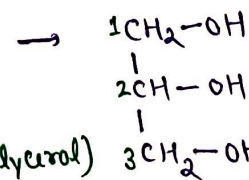 → 1CH₂–OH
|
2CH – OH
|
lycerol) 3CH₂–OH